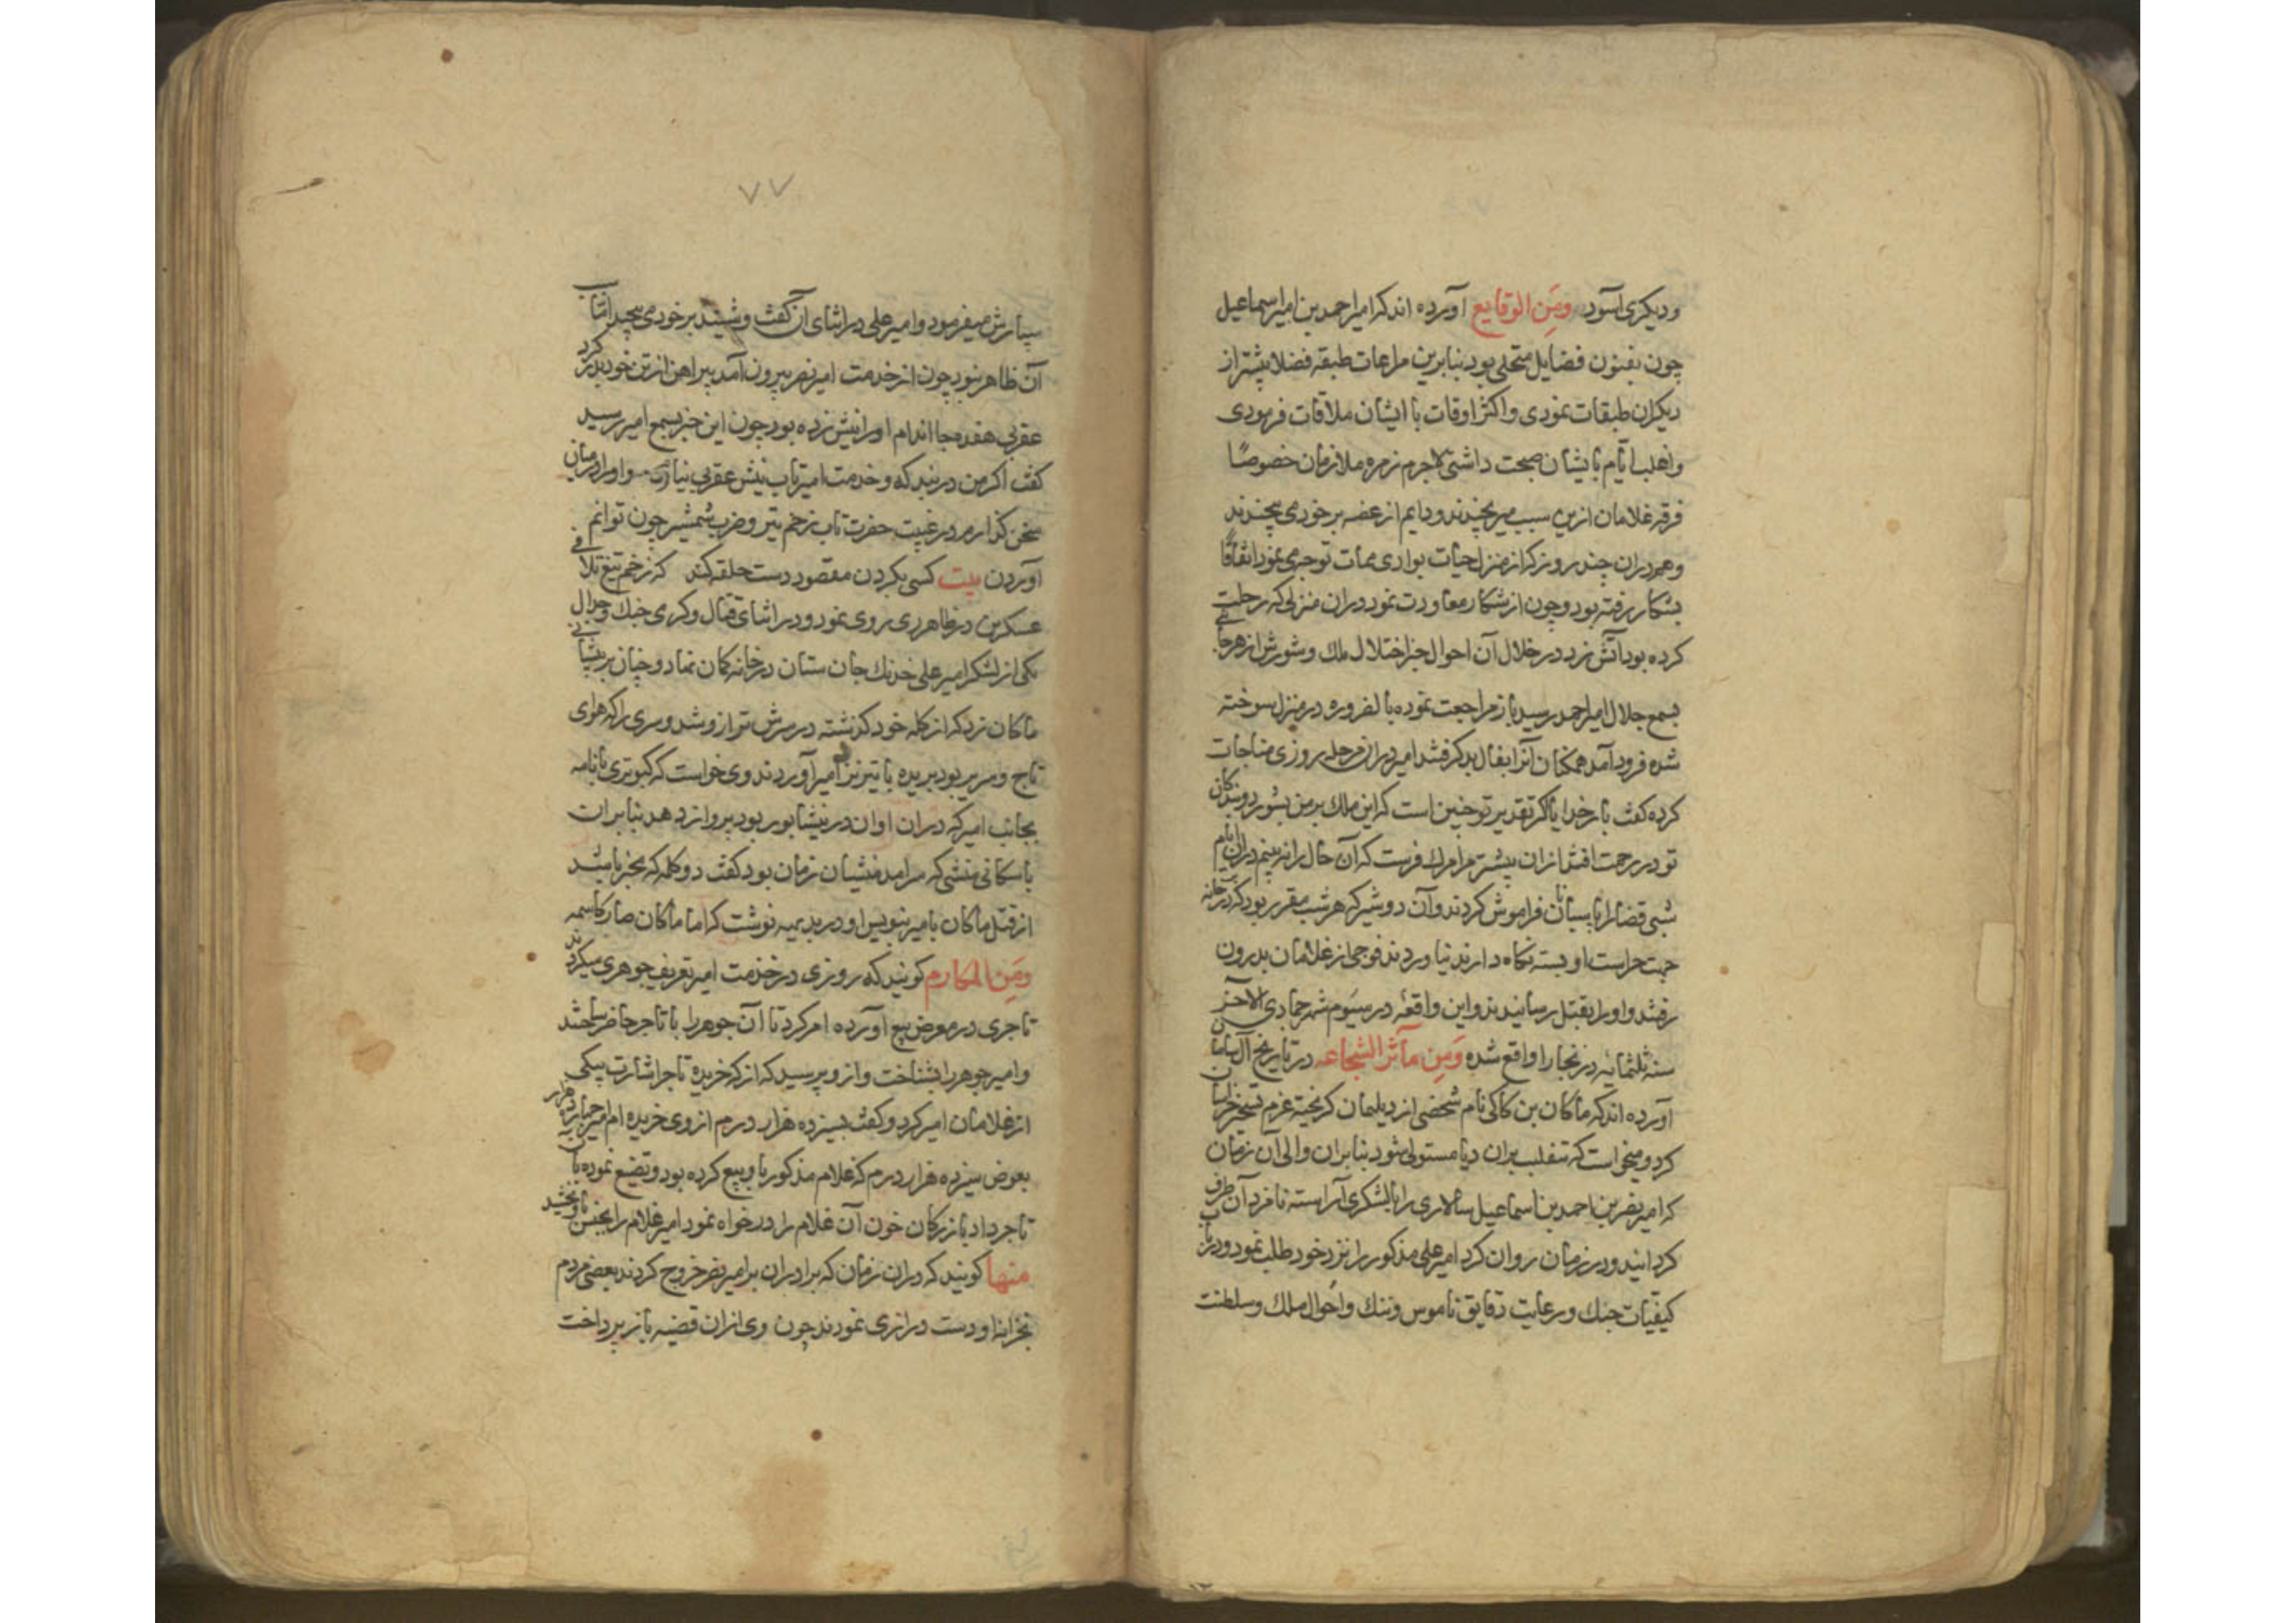 ودیکری آسود ومن الوقایع آورده اند که امیر احمد بن امیر اسماعیل
چون بفنون فضایل متحلی بود بنابرین مراعات طبقه فضلا پیشتر از
دیکران طبقات نمودی واکثر اوقات با ایشان ملاقات فرمودی
واغلب ایام با یشان صحبت داشتی لاجرم زمره ملازمان خصوصًا
فرقه غلامان ازین سبب میرنجیدند ودایم از غصه بر خود می پیچیدند
وهم دران چند روز که از منزل حیات بوادی ممات توجه می نمود اتفاقًا
بشکار رفته بود وچون از شکار معاودت نمود دران منزلی که رحلت
کرده بود آتش زد در خلال آن احوال خبر اختلال ملک وشورش از هر جا
بسمع جلال امیر احمد رسید باز مراجعت نموده بالضروره در منزل سوخته
شده فرود آمد همکنان آنرا بفال بد کرفتند امیر دران مرحله روزی مناجات
کرده کفت بار خدایا اکر تقدیر تو چنین است که این ملک بر من بشورد وبندکان
تو در زحمت افتند ازان پیشتر مرا مرک فرست که آن حال را نه بینم دران ایام
شبی قضا را پاسبانان فراموش کردند وآن دو شیر که هر شب مقرر بود که در خانه
جهت حراست او بسته نکاه دارند نیاوردند فوجی از غلامان بدرون
رفتند واو را بقتل رسانیدند واین واقعه در سیوم شهر جمادی الاخر
سنه ثلثمایه در بخارا واقع شده ومن مآثر الشجاعه در تاریخ آل سامان
آورده اند که ماکان بن کاکی نام شخصی از دیلمان کریخته عزم تسخیر خراسان
کرد ومیخواست که بتغلب بران دیا مستولی شود بنابران والی آن زمان
که امیر نصر بن احمد بن اسماعیل سالاری را با لشکری آراسته نامزد آن طرف
کردانید ودر زمان روان کرد امیر علی مذکور را نزد خود طلب نمود ودر باب
کیفیات جنک ورعایت دقایق ناموس وننک واحوال ملک وسلطنت
۷۷
سپارش میفرمود وامیر علی در اثنای آن کفت وشنید بر خود می پیچید اما سبب
آن ظاهر نبود چون از خدمت امیر نصر بیرون آمد پیراهن از تن خود بدر کرد
عقربی هفده جا اندام او را نیش زده بود چون این خبر بسمع امیر رسید
کفت اکر من در بند که وخدمت امیر تاب نیش عقربی نیارم واو را در میان
سخن کذارم در غیبت حضرت تاب زخم تیر وضرب شمشیر چون توانم
آوردن بیت کسی بکردن مقصود دست حلقه کند که زخم تیغ تلافی
عسکرین در ظاهر ری روی نمود ودر اثنای قتال وکری جنک وجدال
یکی از لشکر امیر علی خدنک جان ستان در خانه کمان نهاد وچنان بر پیشانی
ماکان زد که از کله خود کذشته در سرش ترازو شد وسری را که هوای
تاج وسریر بود بریده با تیر نزد امیر آوردند وی خواست که کبوتری با نامه
بجانب امیر که دران اوان در نیشابور بود پرواز دهد بنابران
با سکانی منشی که سرامد منشیان زمان بود کفت دو کلمه که مخبر باشد
از قتل ماکان بامیر بنویس او در بدیهیه نوشت که اما ماکان صار کاسمه
ومن المکارم کویند که روزی در خدمت امیر تعریف جوهری میکردند
تاجری در معرض بیع آورده امر کرد تا آن جوهر را با تاجر حاضر ساختند
وامیر جوهر را بشناخت وازو پرسید که از که خریده تاجر اشارت بیکی
از غلامان امیر کرد وکفت بسیزده هزار درم از وی خریده ام امیر چهارده هزار
بعوض سیزده هزار درم که غلام مذکور با و بیع کرده بود وتضیع نموده بآن
تاجر داد بازرکان خون آن غلام را در خواه نمود امیر غلام را بجنس باو بخشید
منها کویند که دران زمان که برادران بر امیر نصر خروج کردند بعضی مردم
بخزانه او دست درازی نمودند چون وی ازان قضیه باز پرداخت